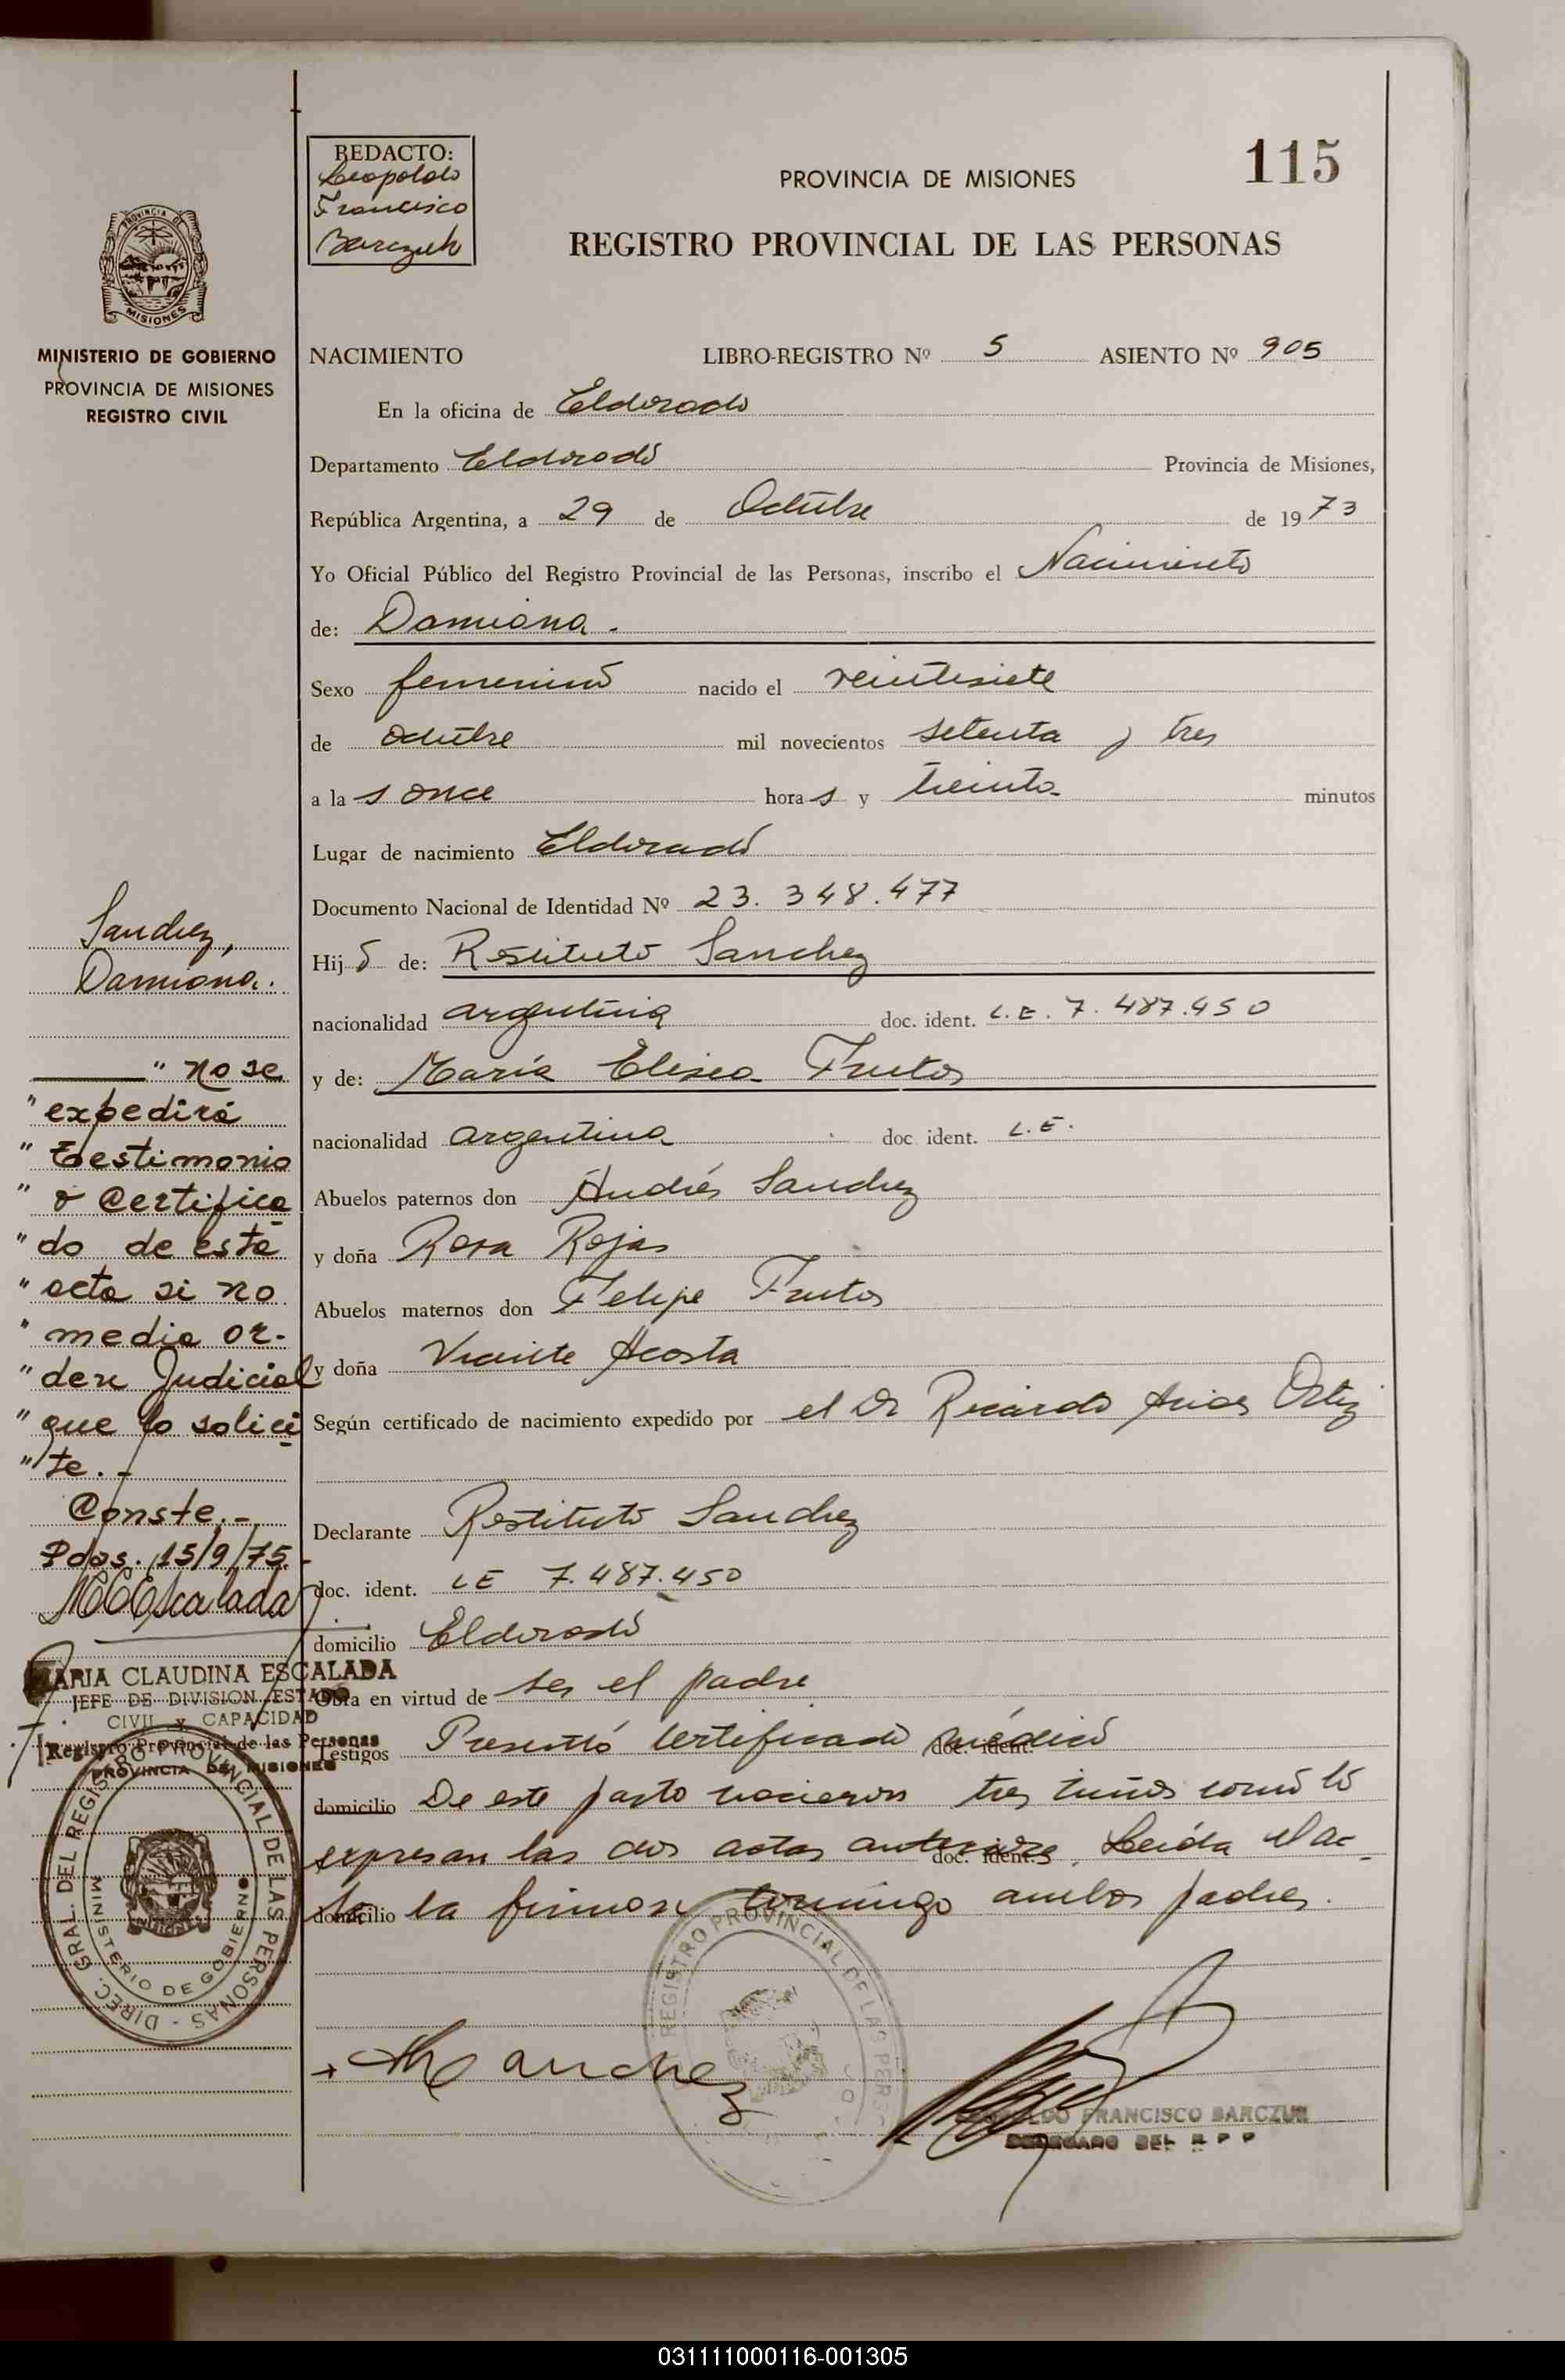 115
REDACTO:
Leopoldo
Francisco
Barczuk
PROVINCIA DE MISIONES
REGISTRO PROVINCIAL DE LAS PERSONAS
PROVINCIA DE
MISIONES
MINISTERIO DE GOBIERNO
PROVINCIA DE MISIONES
REGISTRO CIVIL
NACIMIENTO LIBRO-REGISTRO Nº 5 ASIENTO Nº 905
En la oficina de Eldorado
Departamento Eldorado Provincia de Misiones,
República Argentina, a 29 de Octubre de 1973
Yo Oficial Público del Registro Provincial de las Personas, inscribo el Nacimiento
de: Damiana.
Sexo femenino nacido el veintisiete
de octubre mil novecientos setenta y tres
a la s once hora s y treinta minutos
Lugar de nacimiento Eldorado
Documento Nacional de Identidad Nº 23.348.477
Hij o de: Restituto Sanchez
nacionalidad argentina doc. ident. L.E. 7.487.450
y de: María Elisea Frutos
nacionalidad argentina doc ident. L.E.
Abuelos paternos don Andrés Sanchez
y doña Rosa Rojas
Abuelos maternos don Felipe Frutos
y doña Acosta
Según certificado de nacimiento expedido por el Dr Ricardo Arias Ortiz
Declarante Restituto Sanchez
doc. ident. LE 7.487.450
domicilio Eldorado
Obra en virtud de ser el padre
Testigos Presentó certificado médico doc. ident.
domicilio De este parto nacieron tres niños como lo
expresan las dos actas anteriores. Leída el ac- doc. ident.
domicilio ta la firman conmigo ambos padres.
Sanchez,
Damiana.
" no se
" expedirá
" testimonio
" o certifica
" do de esta
" acta si no
" media or-
" den Judicial
" que lo solici
" te.-
Conste.-
Pdas. 15/9/75.-
MCEscalada
MARIA CLAUDINA ESCALADA
JEFE DE DIVISION ESTADO
CIVIL y CAPACIDAD
Registro Provincial de las Personas
PROVINCIA DE MISIONES
DIREC. GRAL. DEL REGISTRO PROVINCIAL DE LAS PERSONAS
MINISTERIO DE GOBIERNO
REGISTRO PROVINCIAL DE LAS PERS
Sanchez
LEOPOLDO FRANCISCO BARCZUK
DELEGADO DEL R P P
031111000116-001305